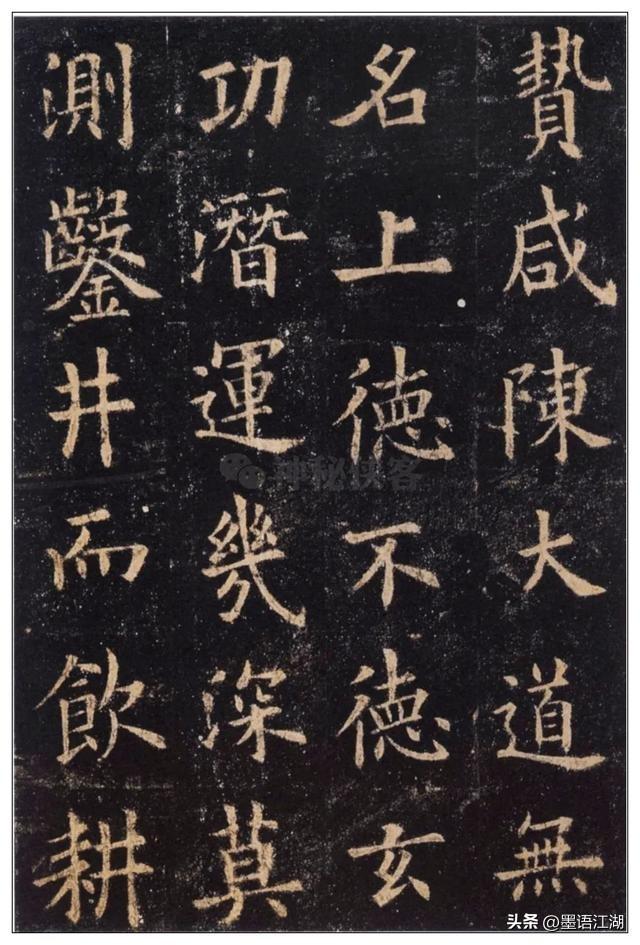 贄咸陳大道無
名上德不德玄
功潛運幾深莫
測鑿井而飲耕
神秘侠客
头条 @墨语江湖